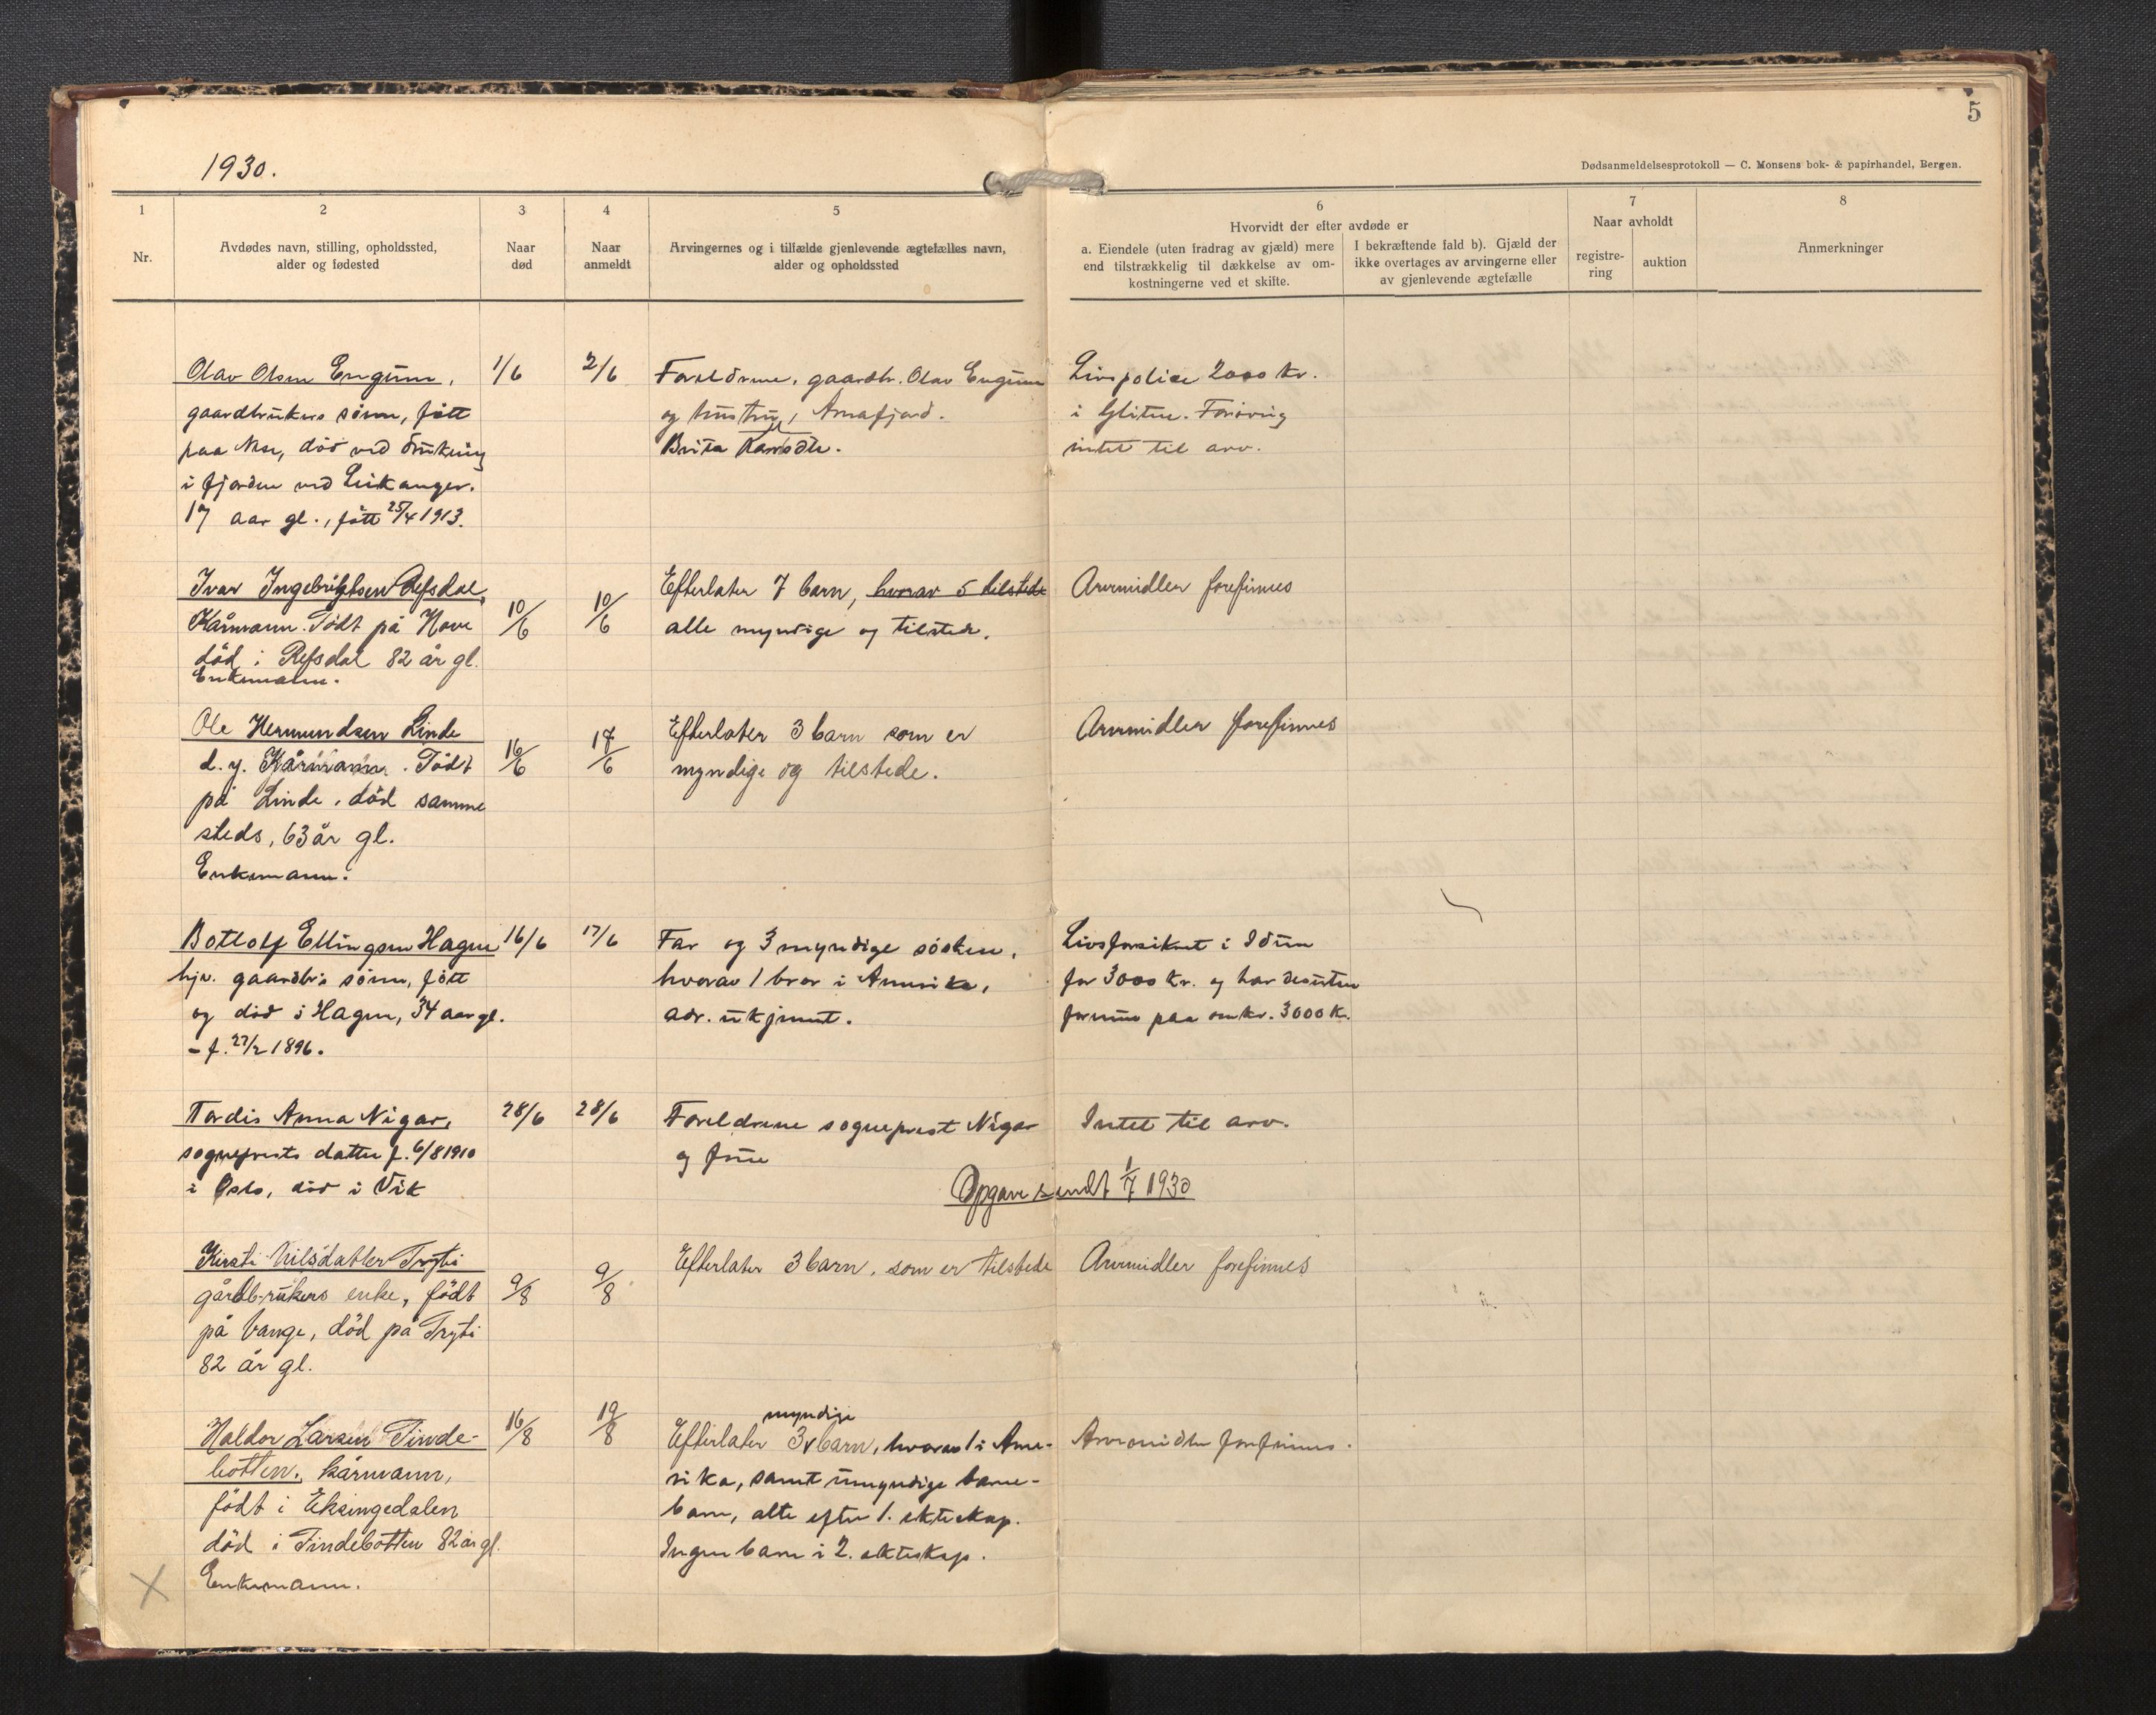 5
1930.
Dødsanmeldelsesprotokoll — C. Monsens bok- & papirhandel, Bergen.
1
Nr.
2
Avdødes navn, stilling, opholdssted,
alder og fødested
3
Naar
død
4
Naar
anmeldt
5
Arvingernes og i tilfælde gjenlevende ægtefælles navn,
alder og opholdssted
6
Hvorvidt der efter avdøde er
a. Eiendele (uten fradrag av gjæld) mere
end tilstrækkelig til dækkelse av om-
kostningerne ved et skifte.
I bekræftende fald b). Gjæld der
ikke overtages av arvingerne eller
av gjenlevende ægtefælle
7
Naar avholdt
registre-
ring
auktion
8
Anmerkninger
Olav Olsen Engum,
gaardbrukers sønn, født
paa Nese, død ved drukning
i fjorden ved Leikanger.
17 aar gl., født 25/4 1913.
1/6
2/6
Foreldrene, gaardbr. Olav Engum
og hustru, Arnafjord.
Brita
Livspolice 2000 kr.
i Glitne. Forøvrig
intet til arv.
Ivar Ingebrigtsen Refsdal,
Kårmann. Födt på Hove
död i Refsdal 82 år gl.
Enkemann.
10/6
10/6
Efterlater 7 barn, hvorav 5 tilstede
alle myndige og tilstede.
Arvemidler forefinnes
Ole Hermundsen Linde
d.y. Kårmann. Födt
på Linde, död samme
steds, 63 år gl.
Enkemann.
16/6
17/6
Efterlater 3 barn som er
myndige og tilstede.
Arvemidler forefinnes
Botlolf Ellingsen Hagen
hjv. gaardbr.s sønn, født
og død i Hagen, 34 aar gl.
- f. 27/2 1896.
16/6
17/6
Far og 3 myndige søsken,
hvorav 1 bror i Amerika,
adr. ukjennt.
Livsforsikret i Idun
for 3000 kr. og har desuten
formue paa omkr. 3000 k.
Tordis Anna Nigar,
sogneprests datter f. 6/8 1910
i Oslo, død i Vik
28/6
28/6
Foreldrene sogneprest Nigar
og frue
Intet til arv.
Opgave sendt 1/7 1930
Kirsti Nilsdatter Tryti
gårdbrukers enke, födt
på Vange, död på Tryti
82 år gl.
9/8
9/8
Efterlater 3 barn, som er tilstede
Arvemidler forefinnes
Haldor Larsen Tinde-
botten, kårmann,
födt i Eksingedalen
död i Tindebotten 82 år gl.
Enkemann.
16/8
19/8
myndige
Efterlater 3 barn, hvorav 1 i Ame-
rika, samt umyndige barne-
barn, alle efter 1. ekteskap.
Ingen barn i 2. ekteskap.
Arvemidler forefinnes.